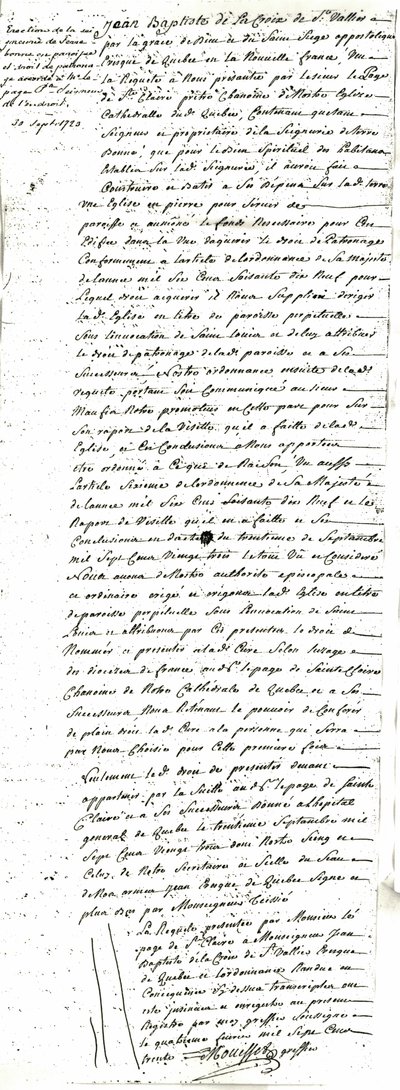 Erection de la sei
gneurie de Terre
bonne en paroisse
et droit de patrona
ge acordé à Mr le
page Ste Claire
de l'endroit,
30 Sept. 1723
Jean Baptiste de la Croix de St Vallier
par la grace de Dieu et du Saint Siege appostolique
Evêque de Quebec en la Nouvelle france, Vu
la Requete a Nous présentée par le sieur le Page
de Ste Claire prêtre Chanoine de Nostre Eglise
Cathedralle de Quebec, Contenant quetant
Seigneur et proprietaire de la Seigneurie de terre
Bonne, que pour le bien Spirituel des habitans
Establis Sur lad. Seigneurie, il auroit fait
Construire et Batir a Ses Depens Sur lad. terre
une Eglise en pierre pour Servir de
paroisse et aumôné le fonds Necessaire pour Cet
Edifice dans la Vue daquerir le droit de Patronage
Conformement a larticle de lordonnance de Sa Majesté
de lannée mil Six Cens Soixante dix Neuf pour
Lequel droit acquerir il Nous Supplioit deriger
lad. Eglise en titre de paroisse perpetuelle
Sous linvocation de Saint Louis et de luy attribuer
le droit de patronage de lad. paroisse et a Ses
Successeurs, Nostre ordonnance ensuite de lad.
requete portant Soit Communiqué au sieur
Maufin Notre promoteur en Cette part pour Sur
Son raport de la Visitte qu'il a faitte de lad.
Eglise, et Ses Conclusions a Nous apportées
etre ordonné a Ce que de Raison, Vu aussy
larticle Sixieme de lordonnance de Sa Majesté
de lannée mil Six Cens Soixante dix Neuf et le
Raport de Visitte qu'il en a faitte et Ses
Conclusions en datte du trentieme de Septembre
mil Sept Cens Vingt trois le tout Vu et Consideré
Nous avons de Nostre authorité episcopale
et ordinaire erigé et erigeons lad. Eglise en titre
de paroisse perpetuelle Sous linvocation de Saint
Louis et attribuons par Ces presentes le droit de
Nommer et presenter a lad. Cure Selon lusage
des dioceses de france aud. Sr le page de Sainte Claire
Chanoine de Notre Cathédrale de Quebec et a Ses
Successeurs, Nous Retenant le pouvoir de Conferer
de plein droit lad. Cure a la personne qui Serra
par Nous Choisie pour Cette premiere fois
Seulement led. droit de presenter devant
appartenir par la Suitte aud. Sr le page de Sainte
Claire et a Ses Successeurs Donné a lhôpital
general de Quebec le trentieme Septembre mil
Sept Cens Vingt trois Sous Nostre Seing et
Celuy de Notre Secretaire et Scelle du Sceau
de Nos armes Jean Evêque de Quebec Signé et
plus bas par Monseigneur Teissié
La Requete presentée par Monsieur le
page de Ste Claire a Monseigneur Jean
Baptiste de la Croix de St Vallier Evêque
de Quebec et lordonnance Rendue en
Consequence Cy dessus transcriptes ont
eté insinuées et enregistré au present
Registre par moy greffier Soussigné
le quatrieme fevrier mil Sept Cens
trente
greffier